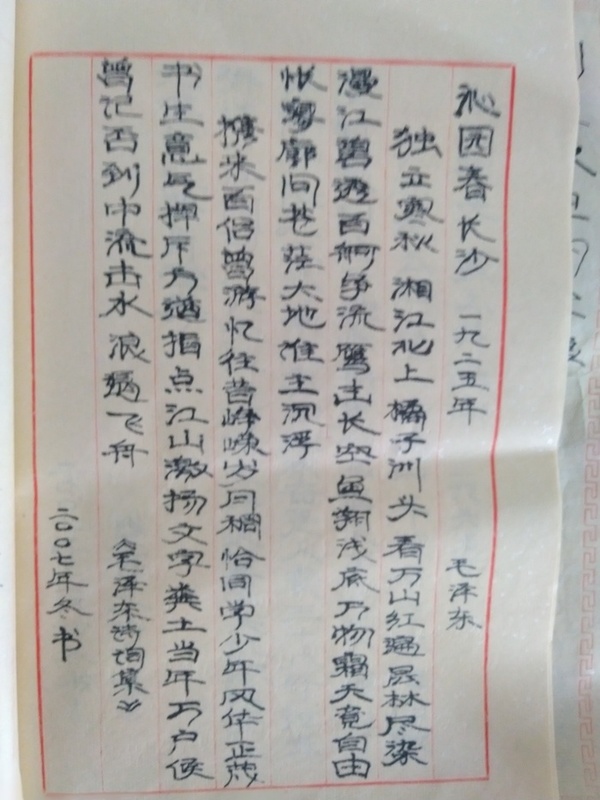 沁园春长沙 一九二五年 毛泽东
独立寒秋湘江北上橘子洲头看万山红遍层林尽染
漫江碧透百舸争流鹰击长空鱼翔浅底万物霜天竟自由
怅寥廓问苍茫大地谁主沉浮
携来百侣曾游忆往昔峥嵘岁月稠恰同学少年风华正茂
书生意气挥斥方遒指点江山激扬文字粪土当年万户侯
曾记否到中流击水浪遏飞舟 《毛泽东诗词集》
二〇〇七年冬书